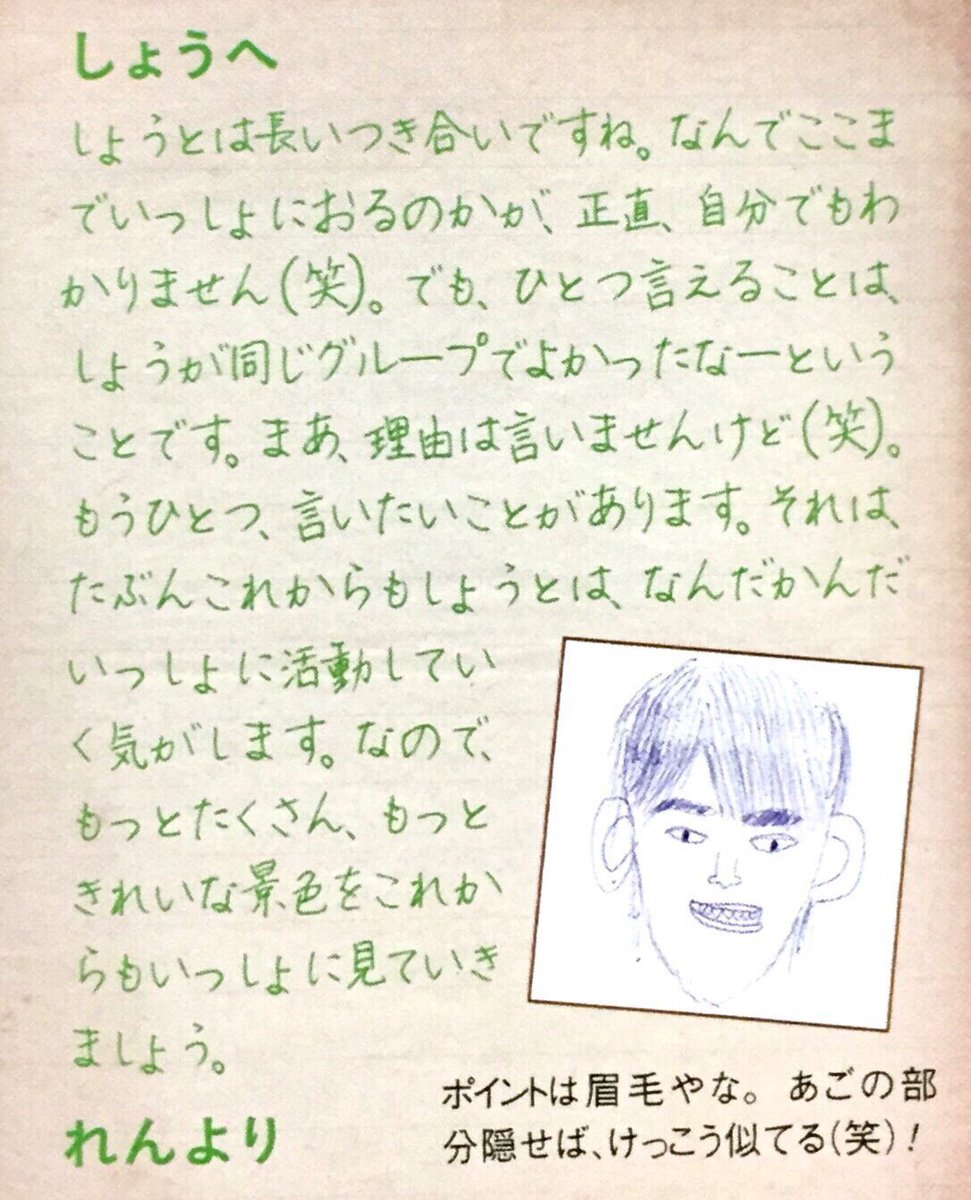 しょうへ
しょうとは長いつき合いですね。なんでここま
でいっしょにおるのかが、正直、自分でもわ
かりません(笑)。でも、ひとつ言えることは、
しょうが同じグループでよかったなーという
ことです。まあ、理由は言いませんけど(笑)。
もうひとつ、言いたいことがあります。それは、
たぶんこれからもしょうとは、なんだかんだ
いっしょに活動してい
く気がします。なので、
もっとたくさん、もっと
きれいな景色をこれか
らもいっしょに見ていき
ましょう。
れんより
ポイントは眉毛やな。あごの部
分隠せば、けっこう似てる(笑)!